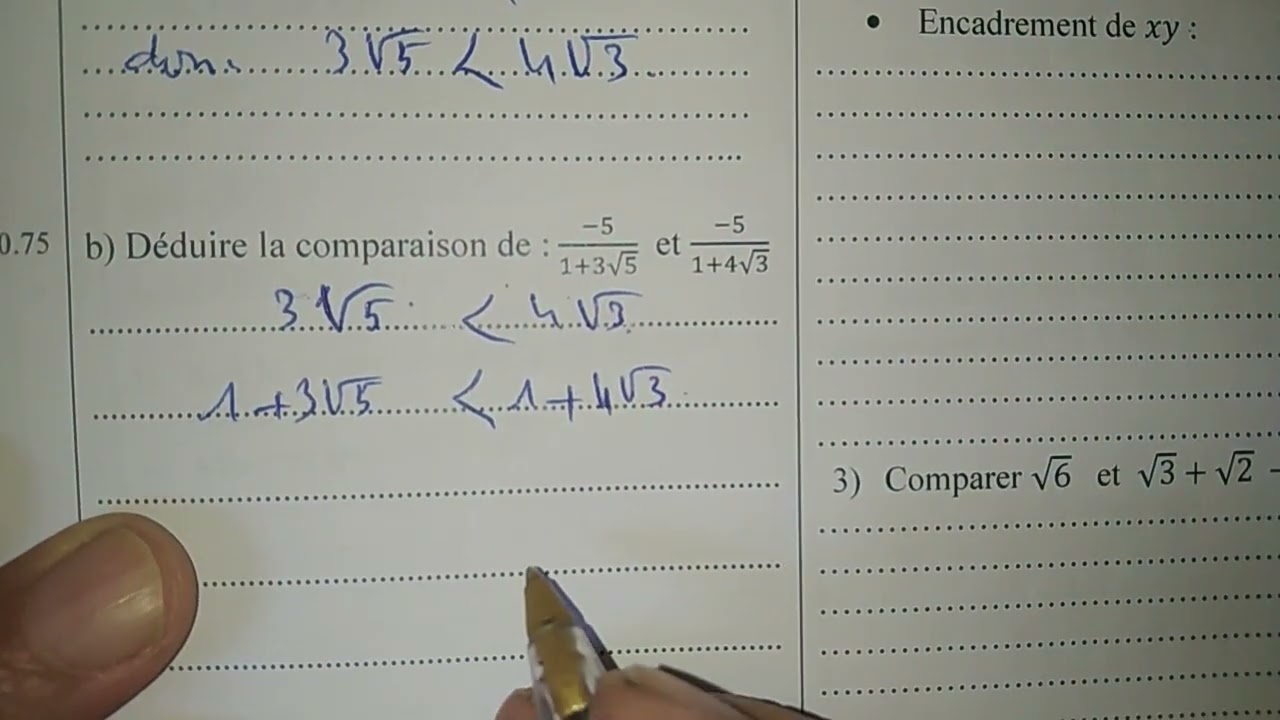 donc 3√5 < 4√3
0.75
b) Déduire la comparaison de : -5/(1+3√5) et -5/(1+4√3)
3√5 < 4√3
1+3√5 < 1+4√3
• Encadrement de xy :
3) Comparer √6 et √3 + √2 -